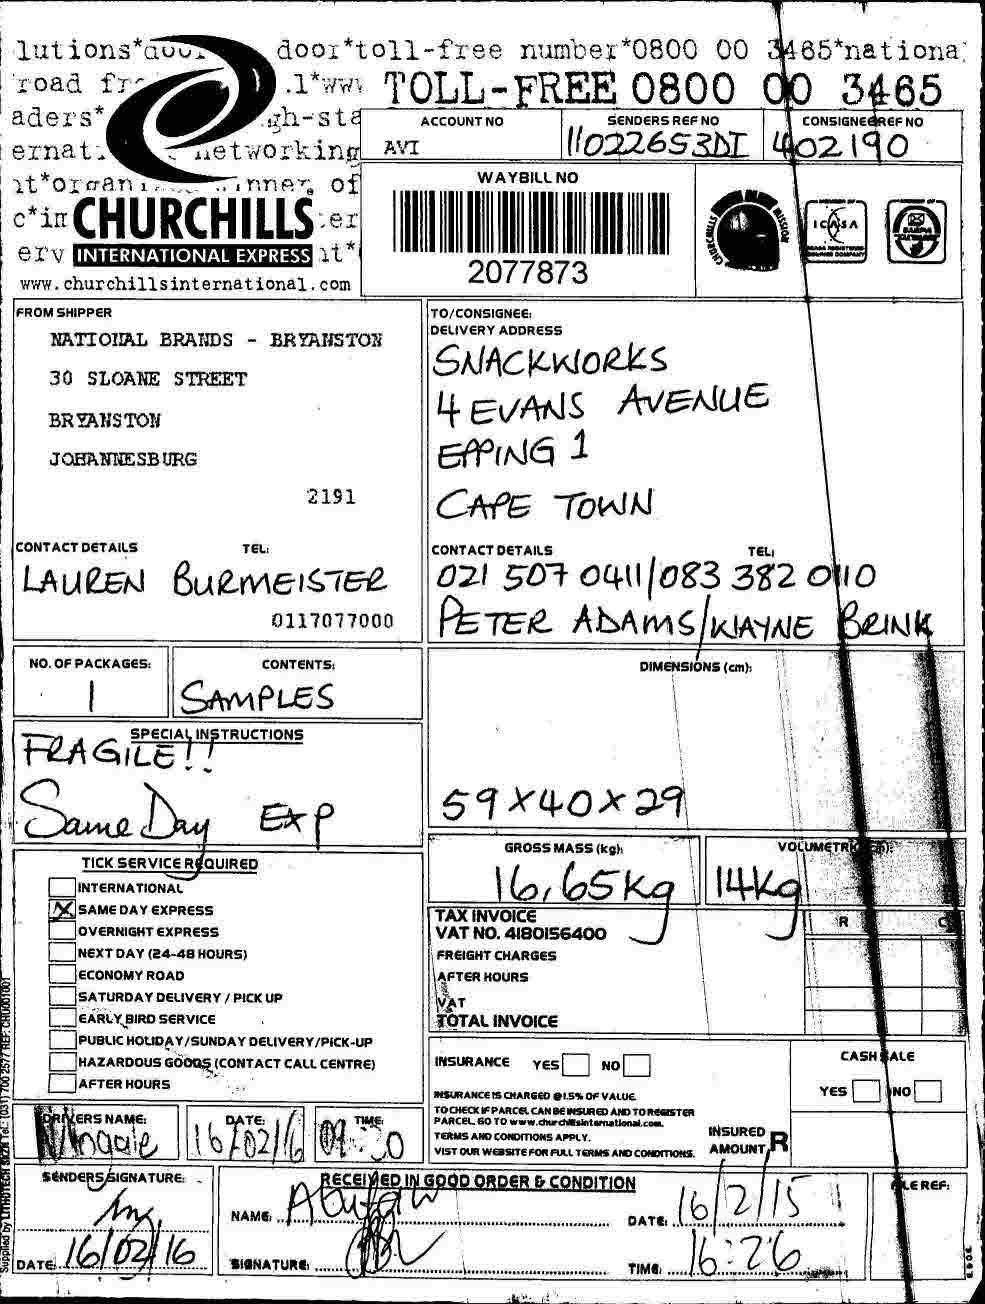 lutions* door*toll-free number*0800 00 3465*nationa
road TOLL-FREE 0800 00 3465
aders* gh-sta
ACCOUNT NO SENDERS REF NO CONSIGNEE REF NO
AVI 11022653DI 402190
ernat networking
of
CHURCHILLS
INTERNATIONAL EXPRESS
www.churchillsinternational.com
WAYBILL NO
2077873
CHURCHILLS MISSION
ICASA
FROM SHIPPER
NATIONAL BRANDS - BRYANSTON
30 SLOANE STREET
BRYANSTON
JOHANNESBURG
2191
CONTACT DETAILS TEL:
LAUREN BURMEISTER
0117077000
TO/CONSIGNEE:
DELIVERY ADDRESS
SNACKWORKS
4 EVANS AVENUE
EPPING 1
CAPE TOWN
CONTACT DETAILS TEL:
021 507 0411/083 382 0110
PETER ADAMS/WAYNE BRINK
NO. OF PACKAGES: CONTENTS:
1 SAMPLES
SPECIAL INSTRUCTIONS
FRAGILE!!
Same Day EXP
DIMENSIONS (cm):
59 X 40 X 29
GROSS MASS (kg): VOLUMETRIC
16,65Kg 14Kg
TICK SERVICE REQUIRED
INTERNATIONAL
X SAME DAY EXPRESS
OVERNIGHT EXPRESS
NEXT DAY (24-48 HOURS)
ECONOMY ROAD
SATURDAY DELIVERY / PICK UP
EARLY BIRD SERVICE
PUBLIC HOLIDAY/SUNDAY DELIVERY/PICK-UP
HAZARDOUS GOODS (CONTACT CALL CENTRE)
AFTER HOURS
TAX INVOICE R C
VAT NO. 4180156400
FREIGHT CHARGES
AFTER HOURS
VAT
TOTAL INVOICE
INSURANCE YES NO
INSURANCE IS CHARGED @1.5% OF VALUE.
TO CHECK IF PARCEL CAN BE INSURED AND TO REGISTER
PARCEL, GO TO www.churchillsinternational.com.
TERMS AND CONDITIONS APPLY.
VISIT OUR WEBSITE FOR FULL TERMS AND CONDITIONS.
INSURED
AMOUNT R
CASH SALE
YES NO
DRIVERS NAME: DATE: TIME:
16/02/16
SENDERS SIGNATURE:
DATE 16/02/16
RECEIVED IN GOOD ORDER & CONDITION
NAME: DATE: 16/2/15
SIGNATURE: TIME: 16:26
FILE REF:
Supplied by LITHOTECH KZN Tel: (031) 700 2577 REF: CHU001001